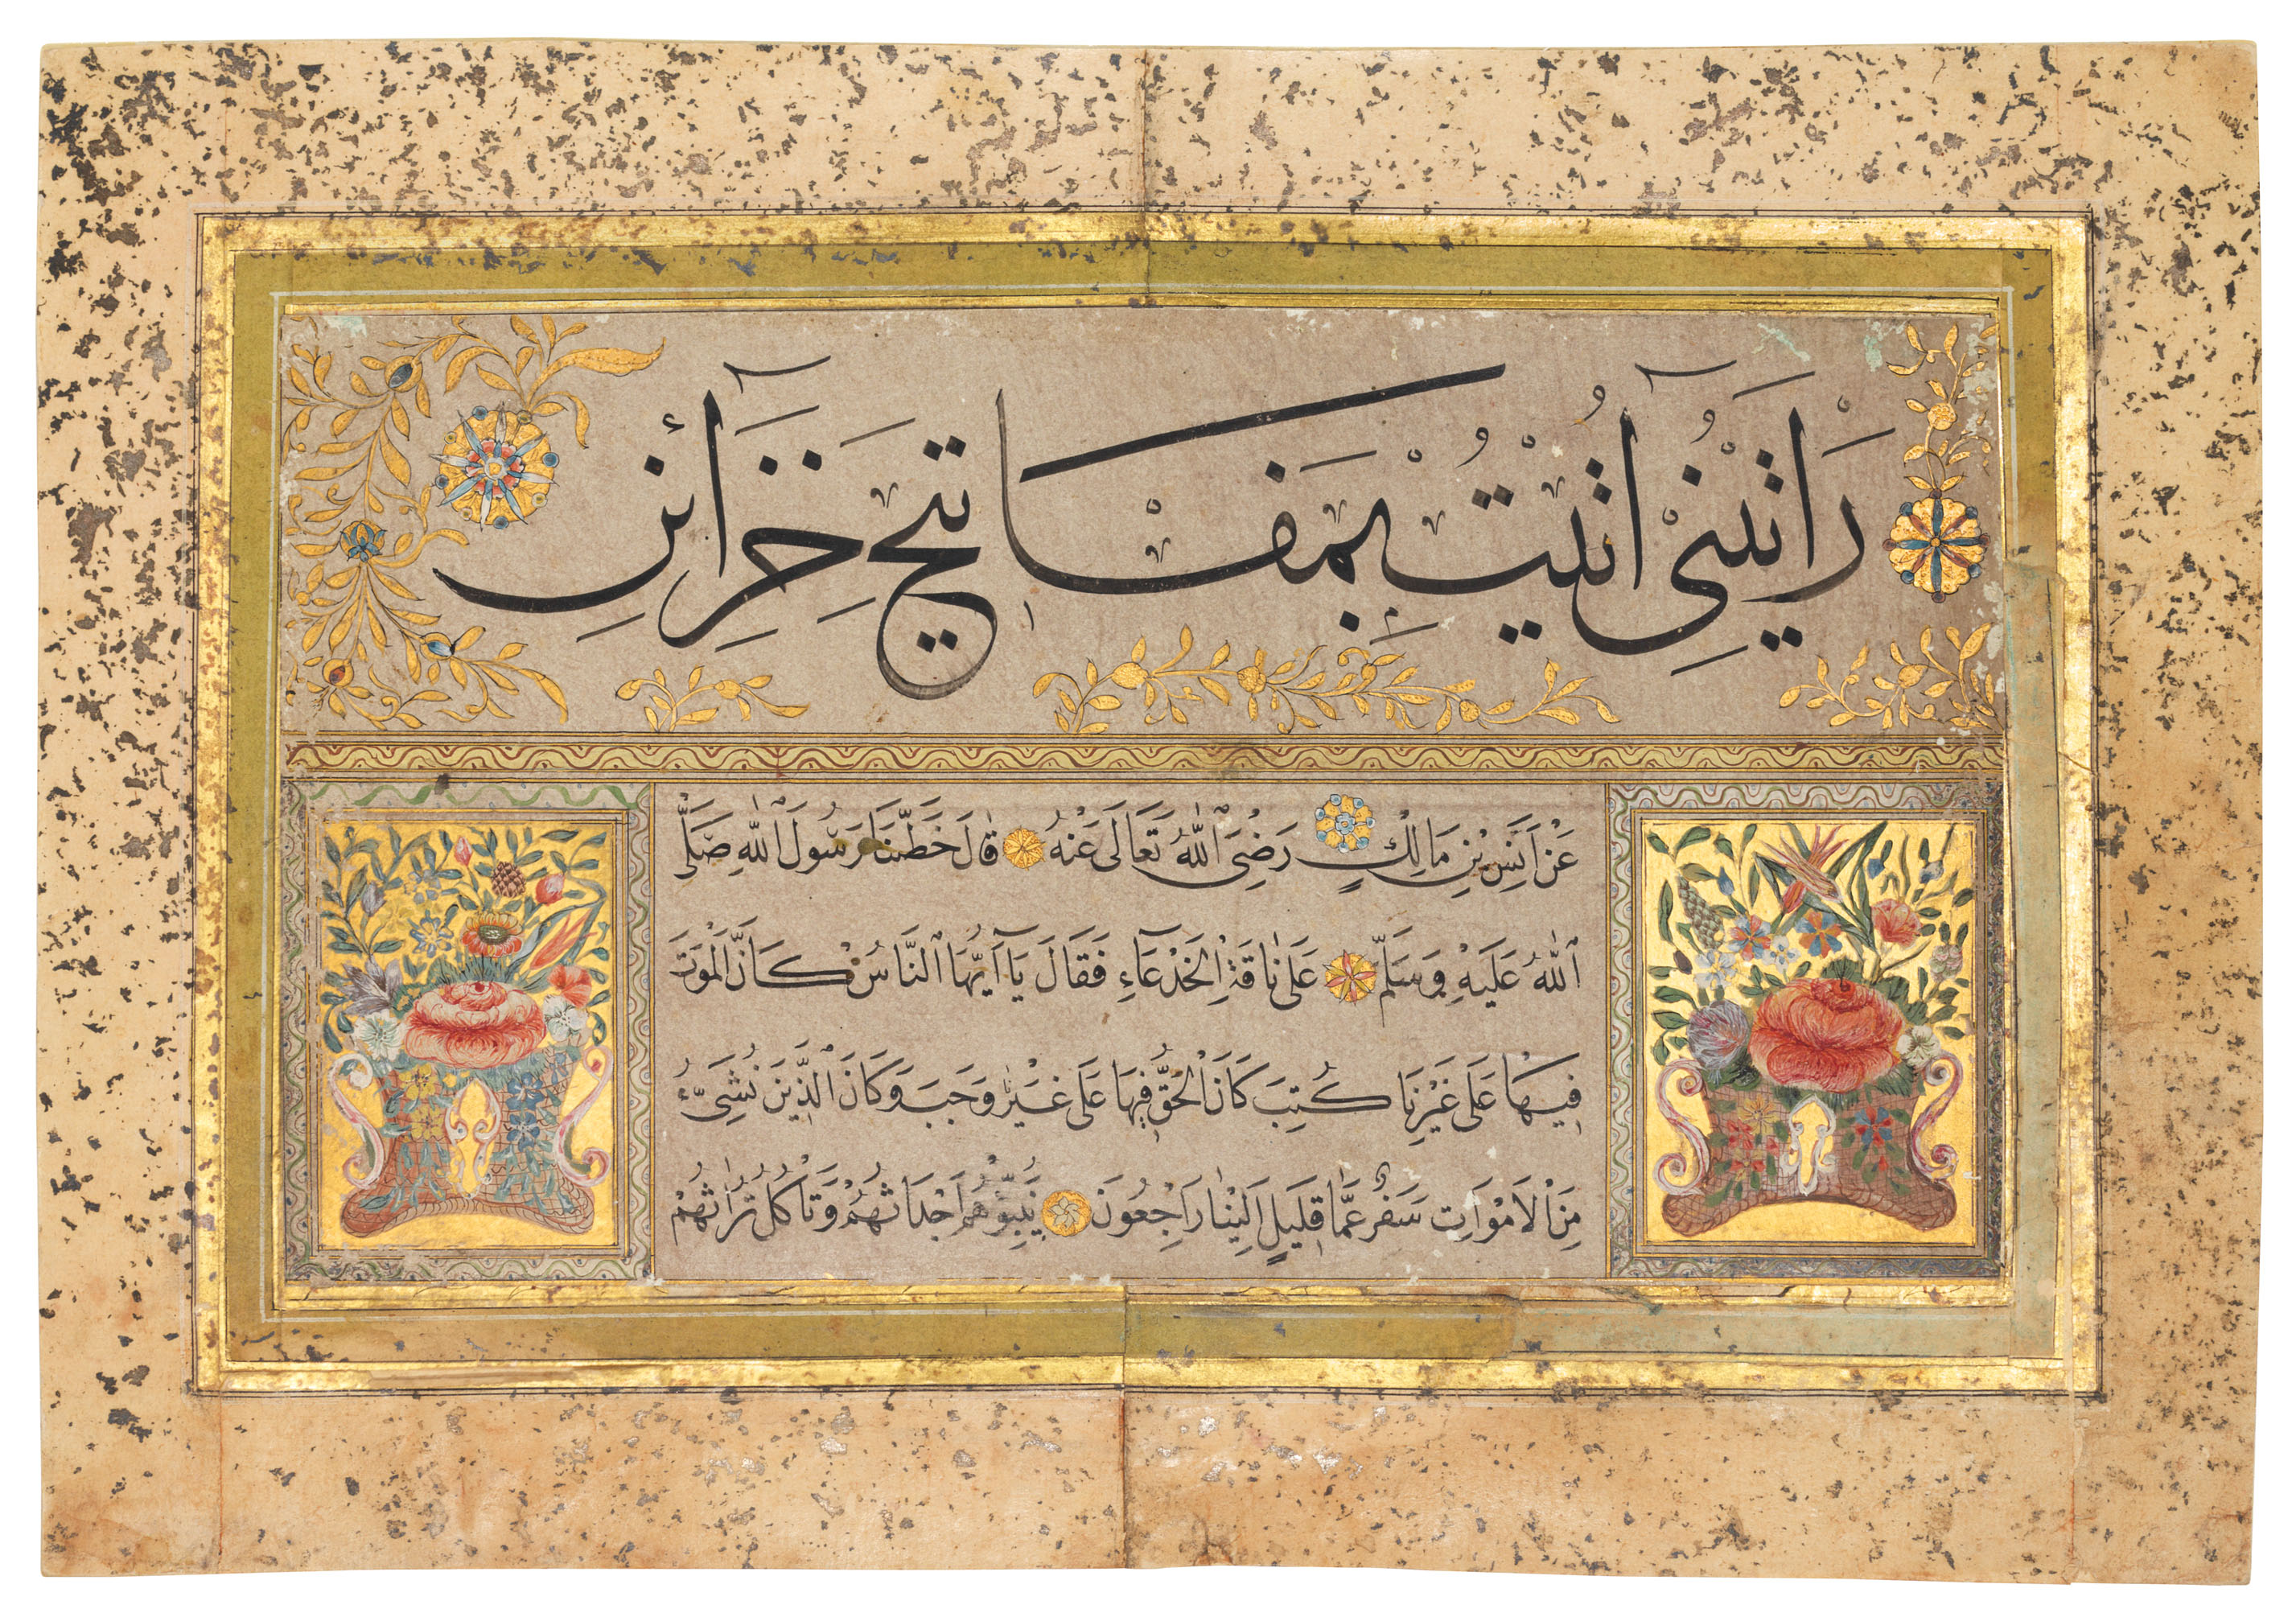 رَاَيْتُنِى اُتِيتُ بِمَفَاتِيحِ خَزَآئِنِ
عَنْ اَنَسِ بْنِ مَالِكٍ رَضِىَ اللّٰهُ تَعَالَى عَنْهُ قَالَ خَطَبَنَا رَسُولُ اللّٰهِ صَلَّى
اللّٰهُ عَلَيْهِ وَسَلَّمَ عَلَى نَاقَةِ الْجَدْعَاءِ فَقَالَ يَا اَيُّهَا النَّاسُ كَاَنَّ الْمَوْتَ
فِيهَا عَلَى غَيْرِنَا كُتِبَ كَاَنَّ الْحَقَّ فِيهَا عَلَى غَيْرِنَا وَجَبَ وَكَاَنَّ الَّذِينَ نُشَيِّعُ
مِنَ الْاَمْوَاتِ سَفْرٌ عَمَّا قَلِيلٍ اِلَيْنَا رَاجِعُونَ نُبَوِّئُهُمْ اَجْدَاثَهُمْ وَنَاْكُلُ تُرَاثَهُمْ